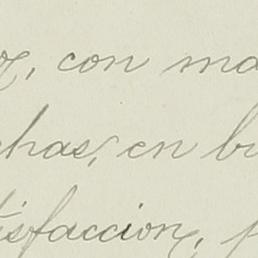 oz, con ma
chas, en bu
tisfaccion, p